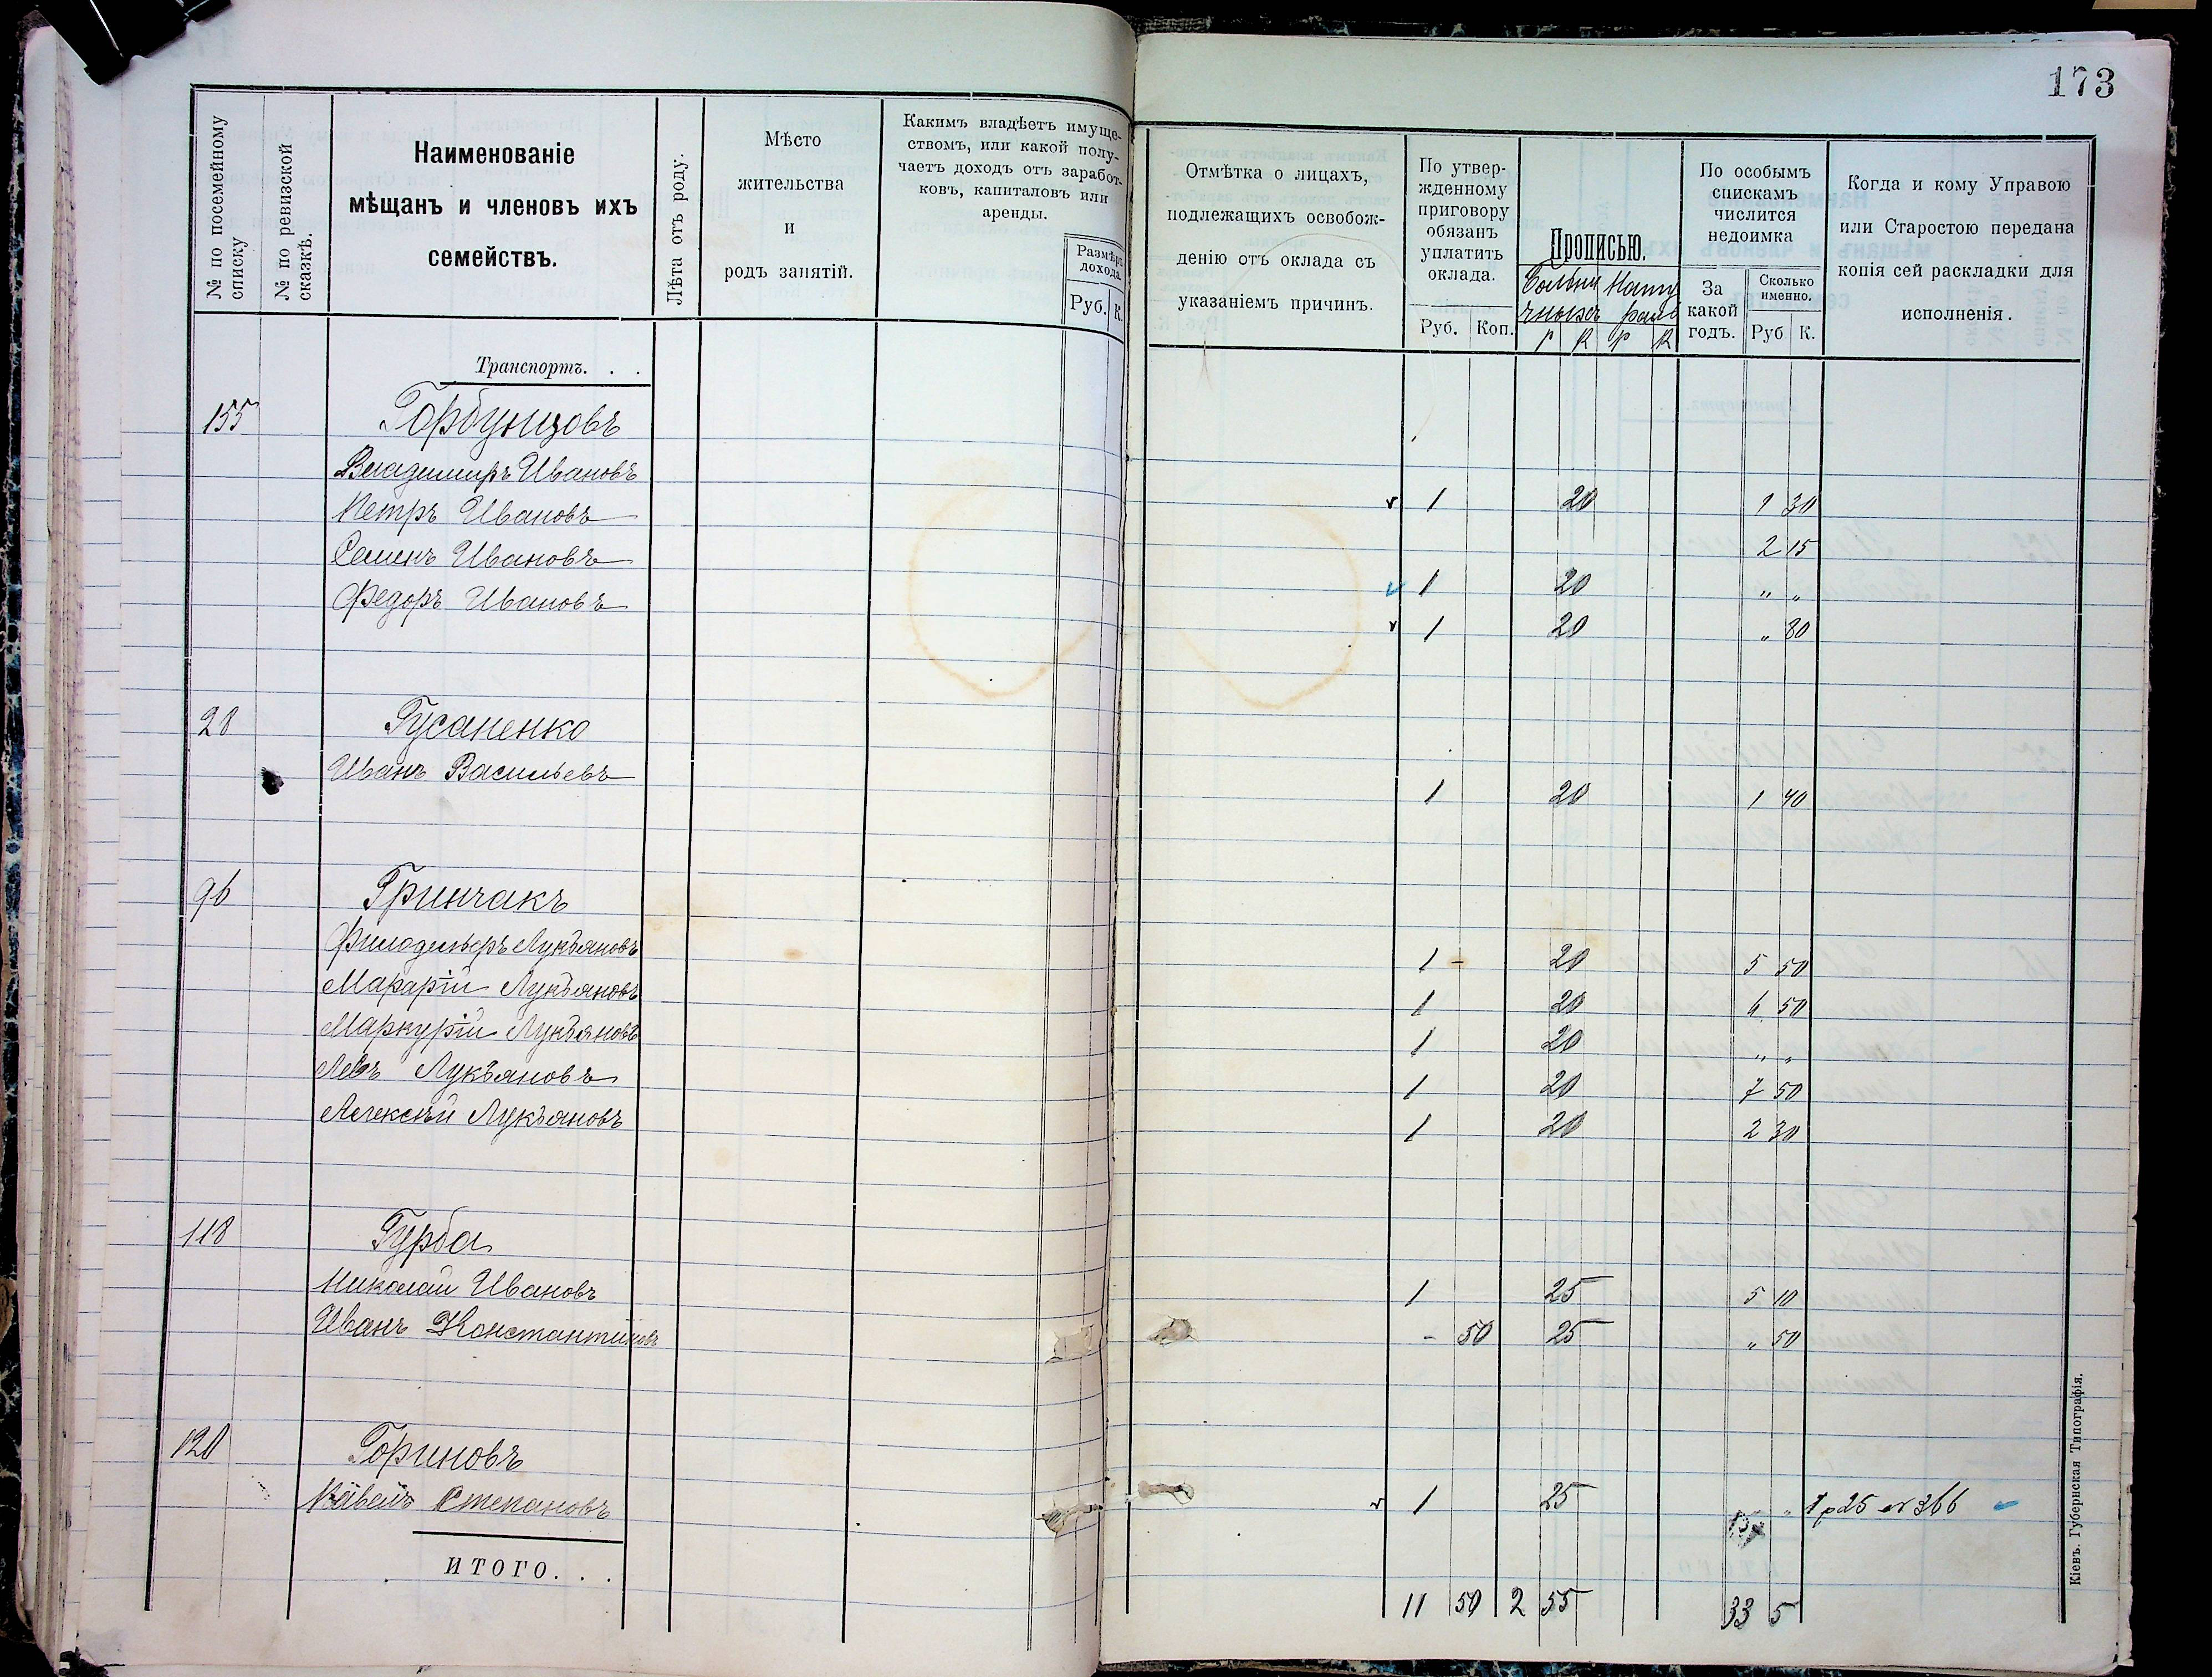 173
№ по посемейному списку
№ по ревизской сказкѣ.
Наименованіе
мѣщанъ и членовъ ихъ
семействъ.
Лѣта отъ роду.
Мѣсто
жительства
и
родъ занятій.
Какимъ владѣетъ имуще-
ствомъ, или какой полу-
чаетъ доходъ отъ заработ-
ковъ, капиталовъ или
аренды.
Размѣръ
дохода.
Руб. К.
Отмѣтка о лицахъ,
подлежащихъ освобож-
денію отъ оклада съ
указаніемъ причинъ.
По утвер-
жденному
приговору
обязанъ
уплатить
оклада.
Руб. Коп.
Прописью.
р к р к
По особымъ
спискамъ
числится
недоимка
За
какой
годъ.
Сколько
именно.
Руб К.
Когда и кому Управою
или Старостою передана
копія сей раскладки для
исполненія.
Транспортъ. . .
155 Горбунцовъ
Владимиръ Ивановъ 1 20 1 30
Петръ Ивановъ 2 15
Семенъ Ивановъ 1 20 " "
Федоръ Ивановъ 1 20 " 80
28 Гусаненко
Иванъ Васильевъ 1 20 1 40
96 Гринчакъ
Лукьяновъ 1 - 20 5 50
Лукьяновъ 1 20 6 50
Маркурій Лукьяновъ 1 20 " "
Левъ Лукьяновъ 1 20 7 50
Алексѣй Лукьяновъ 1 20 2 30
118 Гурба
Николай Ивановъ 1 25 5 10
Иванъ Константиновъ - 50 25 " 50
120 Гориновъ
Степановъ 1 25 1 р 25 № 366
ИТОГО. . .
11 50 2 55 33 5
Кіевъ. Губернская Типографія.